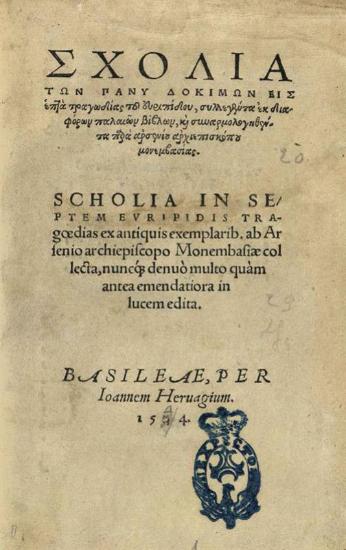 ΣΧΟΛΙΑ
ΤΩΝ ΠΑΝΥ ΔΟΚΙΜΩΝ ΕΙΣ
ἑπτὰ τραγῳδίας τοῦ Εὐριπίδου, συλλεγέντα ἐκ δια-
φόρων παλαιῶν βίβλων, καὶ συναρμολογηθέν-
τα παρὰ ἀρσενίου ἀρχιεπισκόπου
μονεμβασίας.
20
SCHOLIA IN SE/
PTEM EVRIPIDIS TRA-
gœdias ex antiquis exemplarib. ab Ar
ſenio archiepiſcopo Monembaſiæ col
lecta, nuncq́ꝫ denuò multo quàm
antea emendatiora in
lucem edita.
BASILEAE, PER
Ioannem Heruagium.